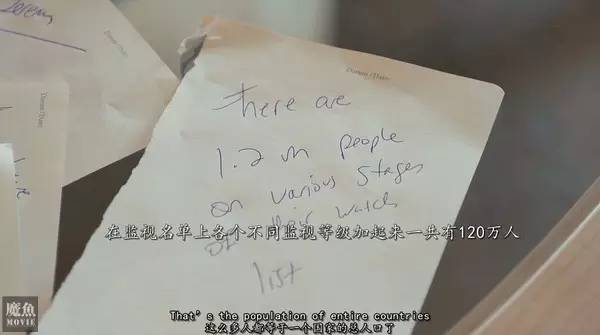 Jeremy
There are
1.2 m people
on various stages
of their watch
list
在监视名单上各个不同监视等级加起来一共有120万人
That's the population of entire countries
这么多人都等于一个国家的总人口了
魔魚
MOVIE